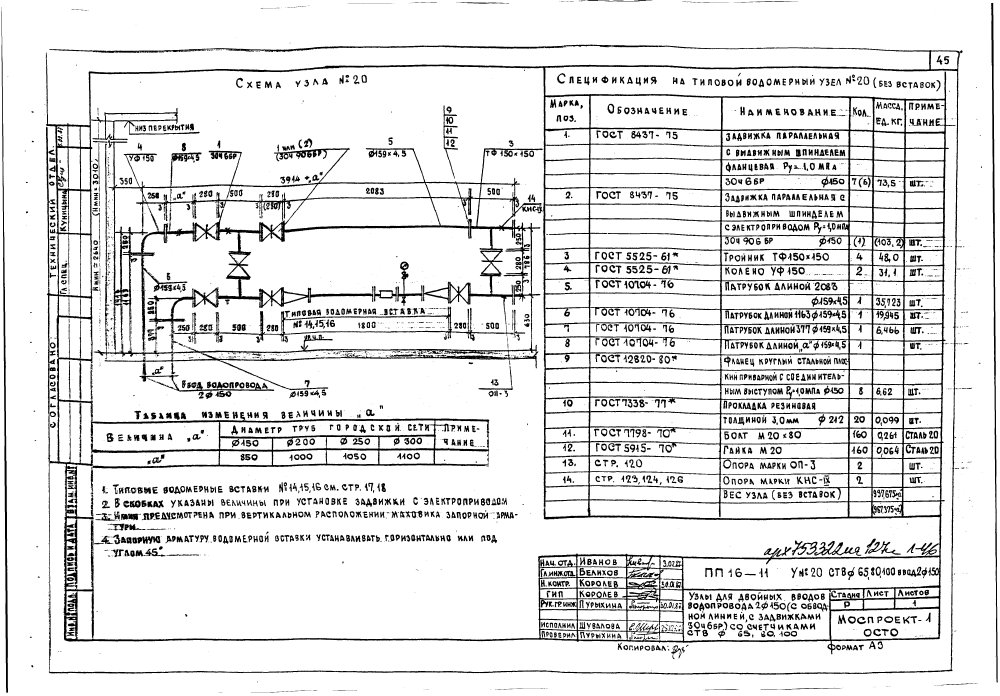 45
СХЕМА УЗЛА №20
НИЗ ПЕРЕКРЫТИЯ
4
8
1
1 ИЛИ (2)
5
9
10
11
12
3
УФ 150
Ø159×4,5
30Ч6БР
(30Ч 906БР)
Ø159×4,5
ТФ 150×150
350
3914 + „а"
260
„а"
280
500
280
2083
500
14
КНС-IX
6
Ø159×4,5
ТИПОВАЯ ВОДОМЕРНАЯ ВСТАВКА
№ 14,15,16
1800
250
280
500
280
280
500
377
430
„а"
ВВОД ВОДОПРОВОДА
2Ø150
7
Ø159×4,5
13
ОП-3
ТАБЛИЦА ИЗМЕНЕНИЯ ВЕЛИЧИНЫ „а"
ВЕЛИЧИНА „а"
ДИАМЕТР ТРУБ ГОРОДСКОЙ СЕТИ
ПРИМЕЧАНИЕ
Ø150 Ø200 Ø250 Ø300
„а" 850 1000 1050 1100
1. ТИПОВЫЕ ВОДОМЕРНЫЕ ВСТАВКИ №14,15,16 СМ. СТР. 17,18
2. В СКОБКАХ УКАЗАНЫ ВЕЛИЧИНЫ ПРИ УСТАНОВКЕ ЗАДВИЖКИ С ЭЛЕКТРОПРИВОДОМ
3. Hмин ПРЕДУСМОТРЕНА ПРИ ВЕРТИКАЛЬНОМ РАСПОЛОЖЕНИИ МАХОВИКА ЗАПОРНОЙ АРМА-
ТУРЫ
4. ЗАПОРНУЮ АРМАТУРУ ВОДОМЕРНОЙ ВСТАВКИ УСТАНАВЛИВАТЬ ГОРИЗОНТАЛЬНО ИЛИ ПОД
УГЛОМ 45°
СПЕЦИФИКАЦИЯ НА ТИПОВОЙ ВОДОМЕРНЫЙ УЗЕЛ №20 (БЕЗ ВСТАВОК)
МАРКА, ПОЗ. ОБОЗНАЧЕНИЕ НАИМЕНОВАНИЕ КОЛ. МАССА, ЕД. КГ. ПРИМЕЧАНИЕ
1. ГОСТ 8437-75 ЗАДВИЖКА ПАРАЛЛЕЛЬНАЯ
С ВЫДВИЖНЫМ ШПИНДЕЛЕМ
ФЛАНЦЕВАЯ Ру=1,0 МПа
30Ч6БР Ø150 7(6) 73,5 ШТ.
2. ГОСТ 8437-75 ЗАДВИЖКА ПАРАЛЛЕЛЬНАЯ С
ВЫДВИЖНЫМ ШПИНДЕЛЕМ
С ЭЛЕКТРОПРИВОДОМ Ру=1,0МПа
30Ч 906БР Ø150 (1) (103,2) ШТ.
3 ГОСТ 5525-61* ТРОЙНИК ТФ150×150 4 48,0 ШТ.
4. ГОСТ 5525-61* КОЛЕНО УФ 150 2 31,1 ШТ.
5. ГОСТ 10704-76 ПАТРУБОК ДЛИНОЙ 2083
Ø159×4,5 1 35,723 ШТ.
6 ГОСТ 10704-76 ПАТРУБОК ДЛИНОЙ 1163 Ø159×4,5 1 19,945 ШТ.
7 ГОСТ 10704-76 ПАТРУБОК ДЛИНОЙ 377 Ø159×4,5 1 6,466 ШТ.
8 ГОСТ 10704-76 ПАТРУБОК ДЛИНОЙ „а" Ø159×4,5 1 ШТ.
9 ГОСТ 12820-80* ФЛАНЕЦ КРУГЛЫЙ СТАЛЬНОЙ ПЛОС-
КИЙ ПРИВАРНОЙ С СОЕДИНИТЕЛЬ-
НЫМ ВЫСТУПОМ Ру=1,0МПа Ø150 8 6,62 ШТ.
10 ГОСТ 7338-77* ПРОКЛАДКА РЕЗИНОВАЯ
ТОЛЩИНОЙ 3,0мм Ø212 20 0,099 ШТ.
11. ГОСТ 7798-70* БОЛТ М20×80 160 0,261 СТАЛЬ 20
12. ГОСТ 5915-70* ГАЙКА М20 160 0,064 СТАЛЬ 20
13. СТР. 120 ОПОРА МАРКИ ОП-3 2 ШТ.
14. СТР. 123, 124, 126 ОПОРА МАРКИ КНС-IX 2 ШТ.
ВЕС УЗЛА (БЕЗ ВСТАВОК)
НАЧ. ОТД. ИВАНОВ
ГЛ.ИНЖ.ОТД. БЕЛИХОВ
Н.КОНТР. КОРОЛЕВ
ГИП КОРОЛЕВ
РУК.ГР.ИНЖ. ПУРЫХИНА
ИСПОЛНИЛ ШУВАЛОВА
ПРОВЕРИЛ ПУРЫХИНА
ПП16-11 У№20 СТВØ 65,80,100 ВВОД 2Ø150
УЗЛЫ ДЛЯ ДВОЙНЫХ ВВОДОВ
ВОДОПРОВОДА 2Ø150 (С ОБВОД-
НОЙ ЛИНИЕЙ, С ЗАДВИЖКАМИ
30Ч6БР) СО СЧЕТЧИКАМИ
СТВ Ø 65, 80, 100
СТАДИЯ ЛИСТ ЛИСТОВ
Р 1
МОСПРОЕКТ-1
ОСТО
КОПИРОВАЛ:
ФОРМАТ А3
СОГЛАСОВАНО:
ТЕХНИЧЕСКИЙ ОТДЕЛ
ГЛ. СПЕЦ. КУНИЦЫНА
ИНВ.№ПОДЛ. ПОДПИСЬ И ДАТА ВЗАМ.ИНВ.№